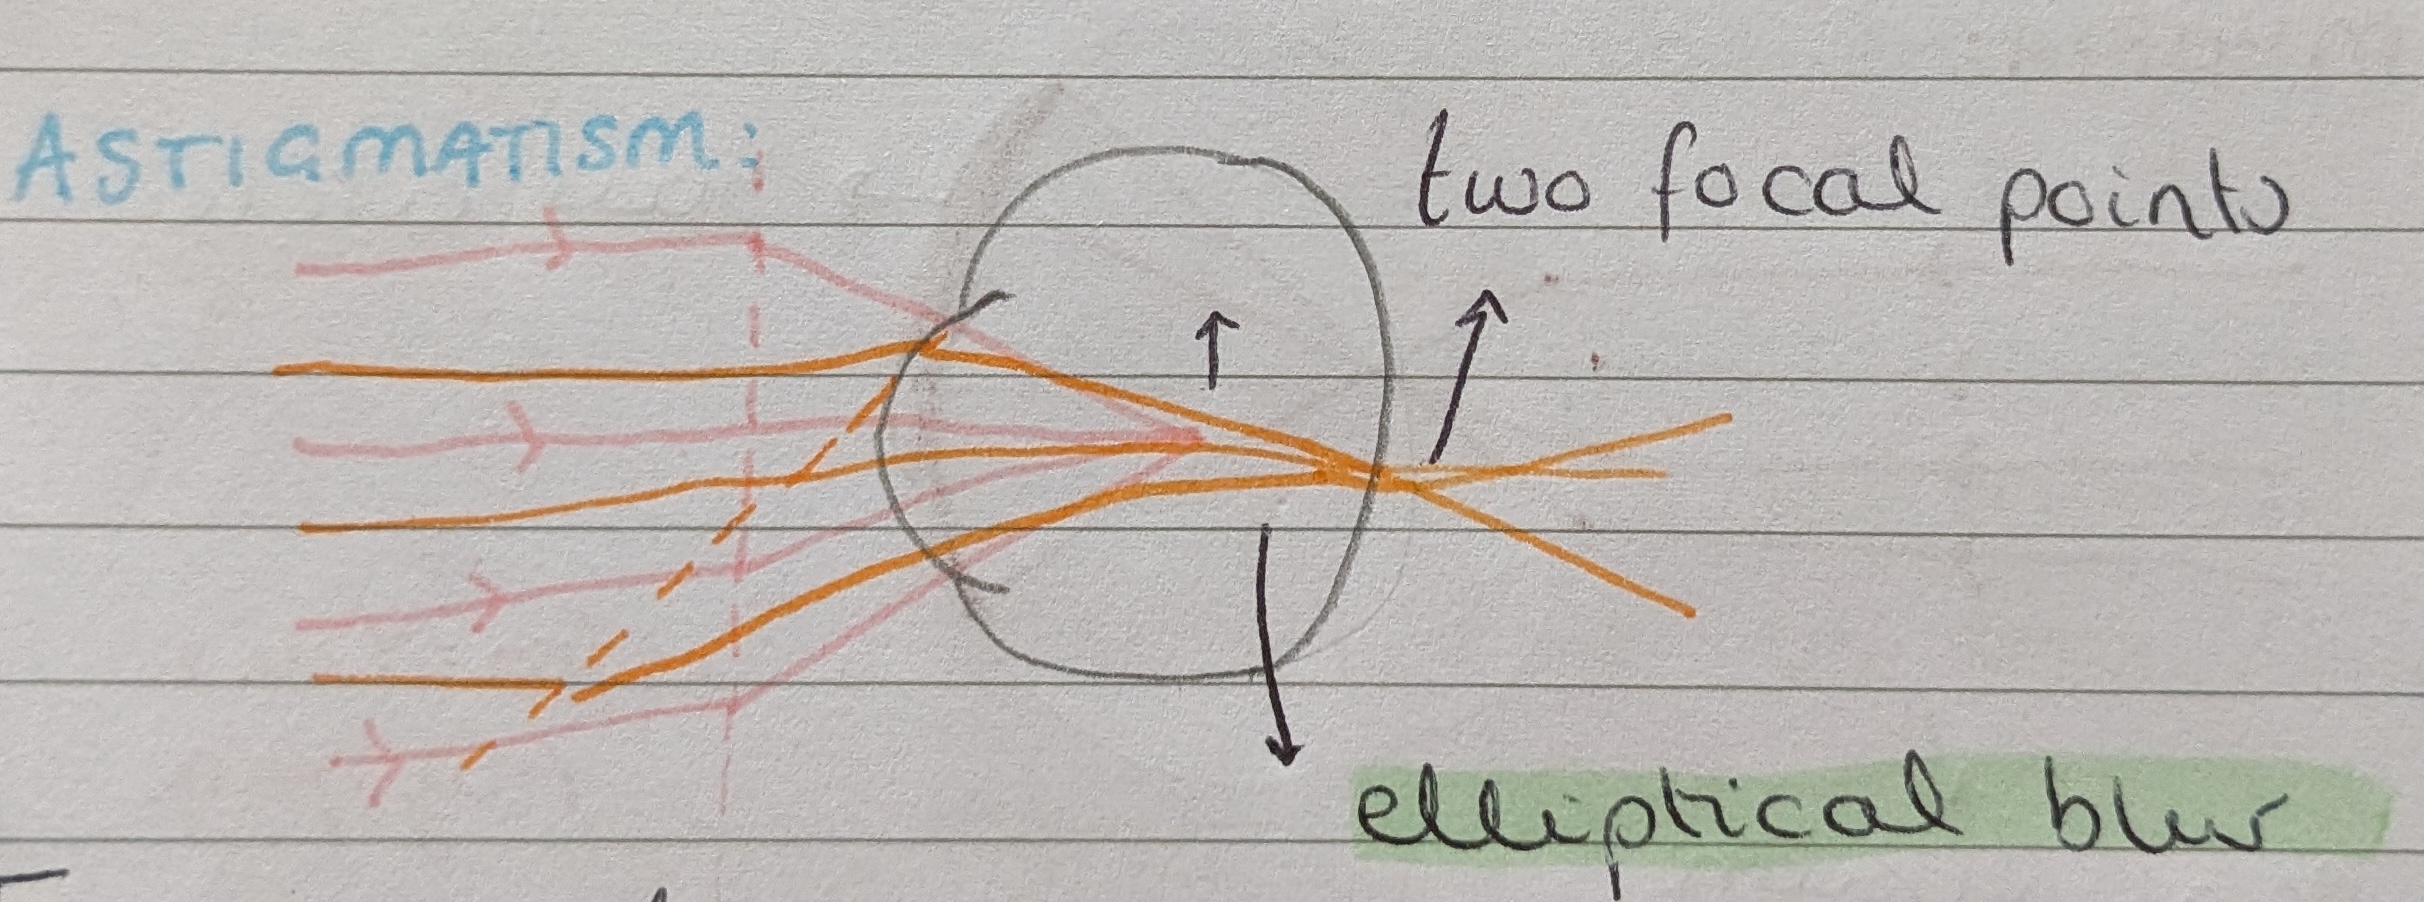 ASTIGMATISM:
two focal points
elliptical blur